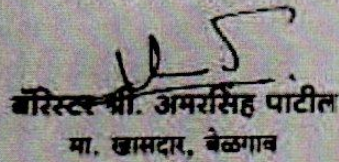 बॅरिस्टर श्री. अमरसिंह पाटील
मा. खासदार, बेळगाव